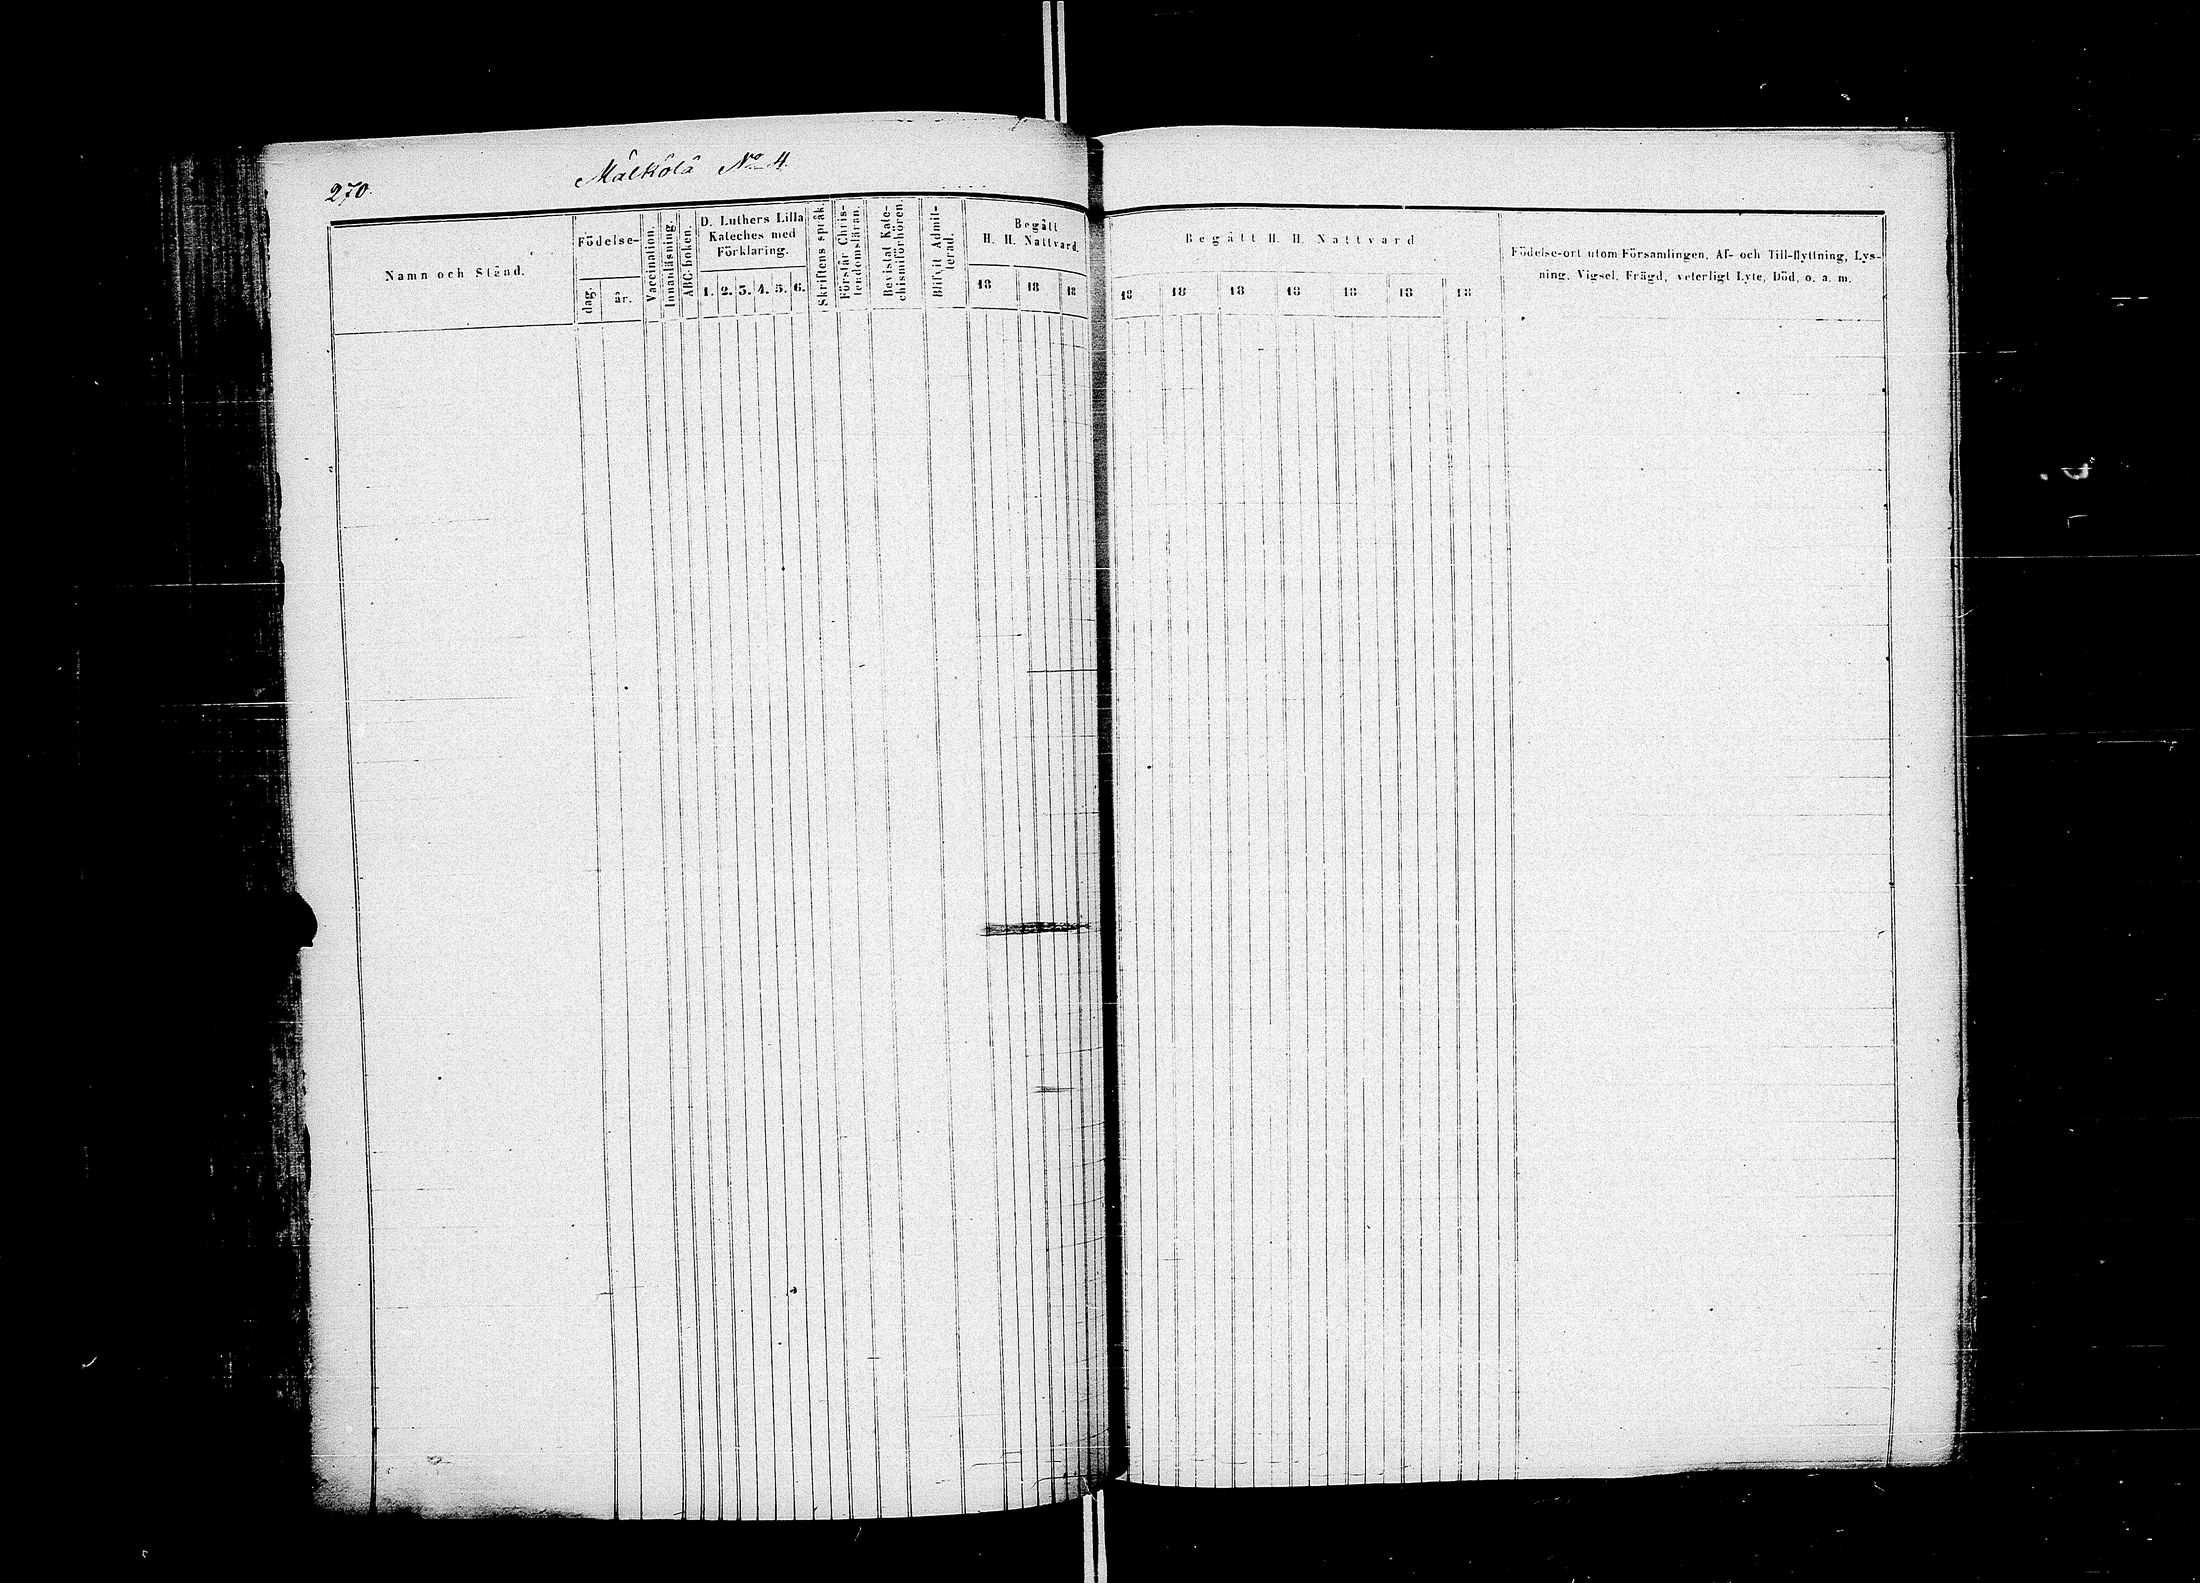 270.
Mälkölä No 4.
Namn och Stånd.
Födelse-
dag.
år.
Vaccination.
Innanläsning.
ABC-boken.
D. Luthers Lilla
Kateches med
Förklaring.
1. 2. 3. 4. 5. 6.
Skriftens språk.
Förstår Chris-
tendomsläran.
Bevistat Kate-
chismiförhören.
Blifvit Admit-
terad.
Begått
H. H. Nattvard.
18 18 18
Begått H. H. Nattvard
18 18 18 18 18 18 18
Födelse-ort utom Församlingen, Af- och Till-flyttning, Lys-
ning, Vigsel, Frägd, veterligt Lyte, Död, o. a. m.